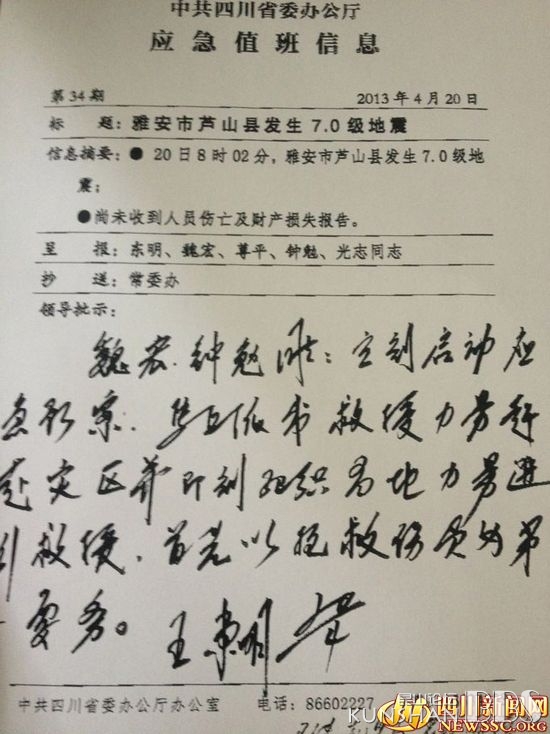 中共四川省委办公厅
应急值班信息
第34期 2013年4月20日
标 题：雅安市芦山县发生7.0级地震
信息摘要：● 20日8时02分，雅安市芦山县发生7.0级地
震；
●尚未收到人员伤亡及财产损失报告。
呈 报：东明、魏宏、尊平、钟勉、光志同志
抄 送：常委办
领导批示：
魏宏、钟勉：立刻启动应
急预案。救援力量赶
赴灾区并即刻组织当地力量进
行救援，首先以抢救伤员为第
一要务。王东明
中共四川省委办公厅办公室 电话：86602227
KUNSHAN 四川新闻网
NEWSSC.ORG